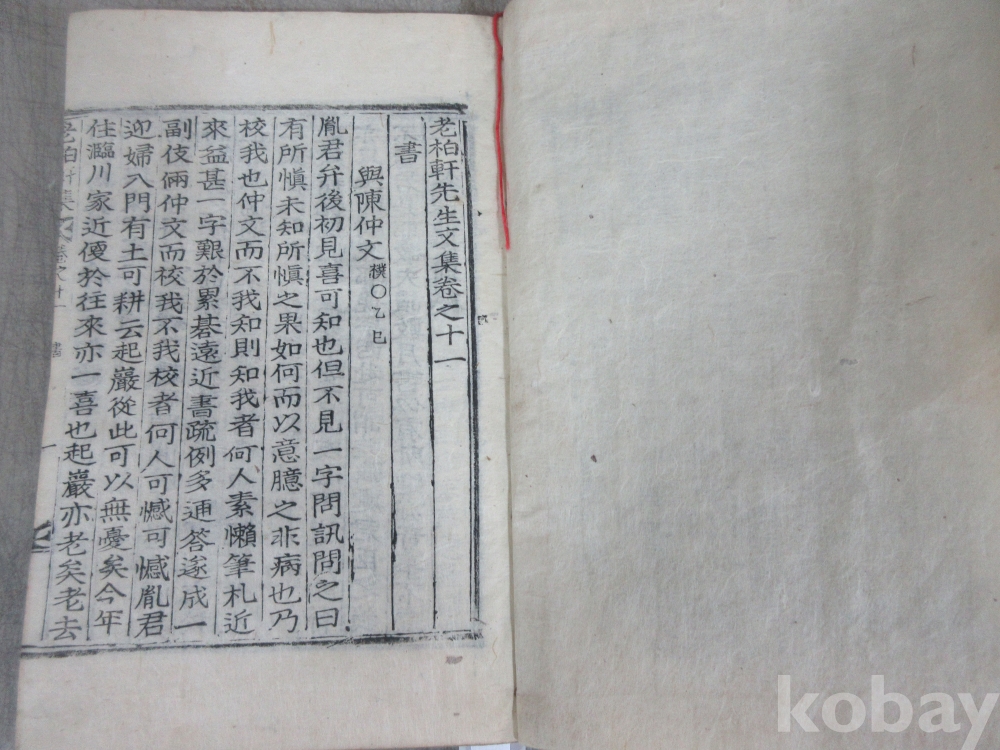 老柏軒先生文集卷之十一
書
與陳仲文 樸○乙巳
胤君弁後初見喜可知也但不見一字問訊問之曰
有所愼未知所愼之果如何而以意臆之非病也乃
校我也仲文而不我知則知我者何人素懶筆札近
來益甚一字艱於累碁遠近書疏例多逋答遂成一
副伎倆仲文而校我不我校者何人可憾可憾胤君
迎婦入門有土可耕云起巖從此可以無憂矣今年
住瀶川家近便於往來亦一喜也起巖亦老矣老去
老柏軒集 卷之十一
書
一
kobay